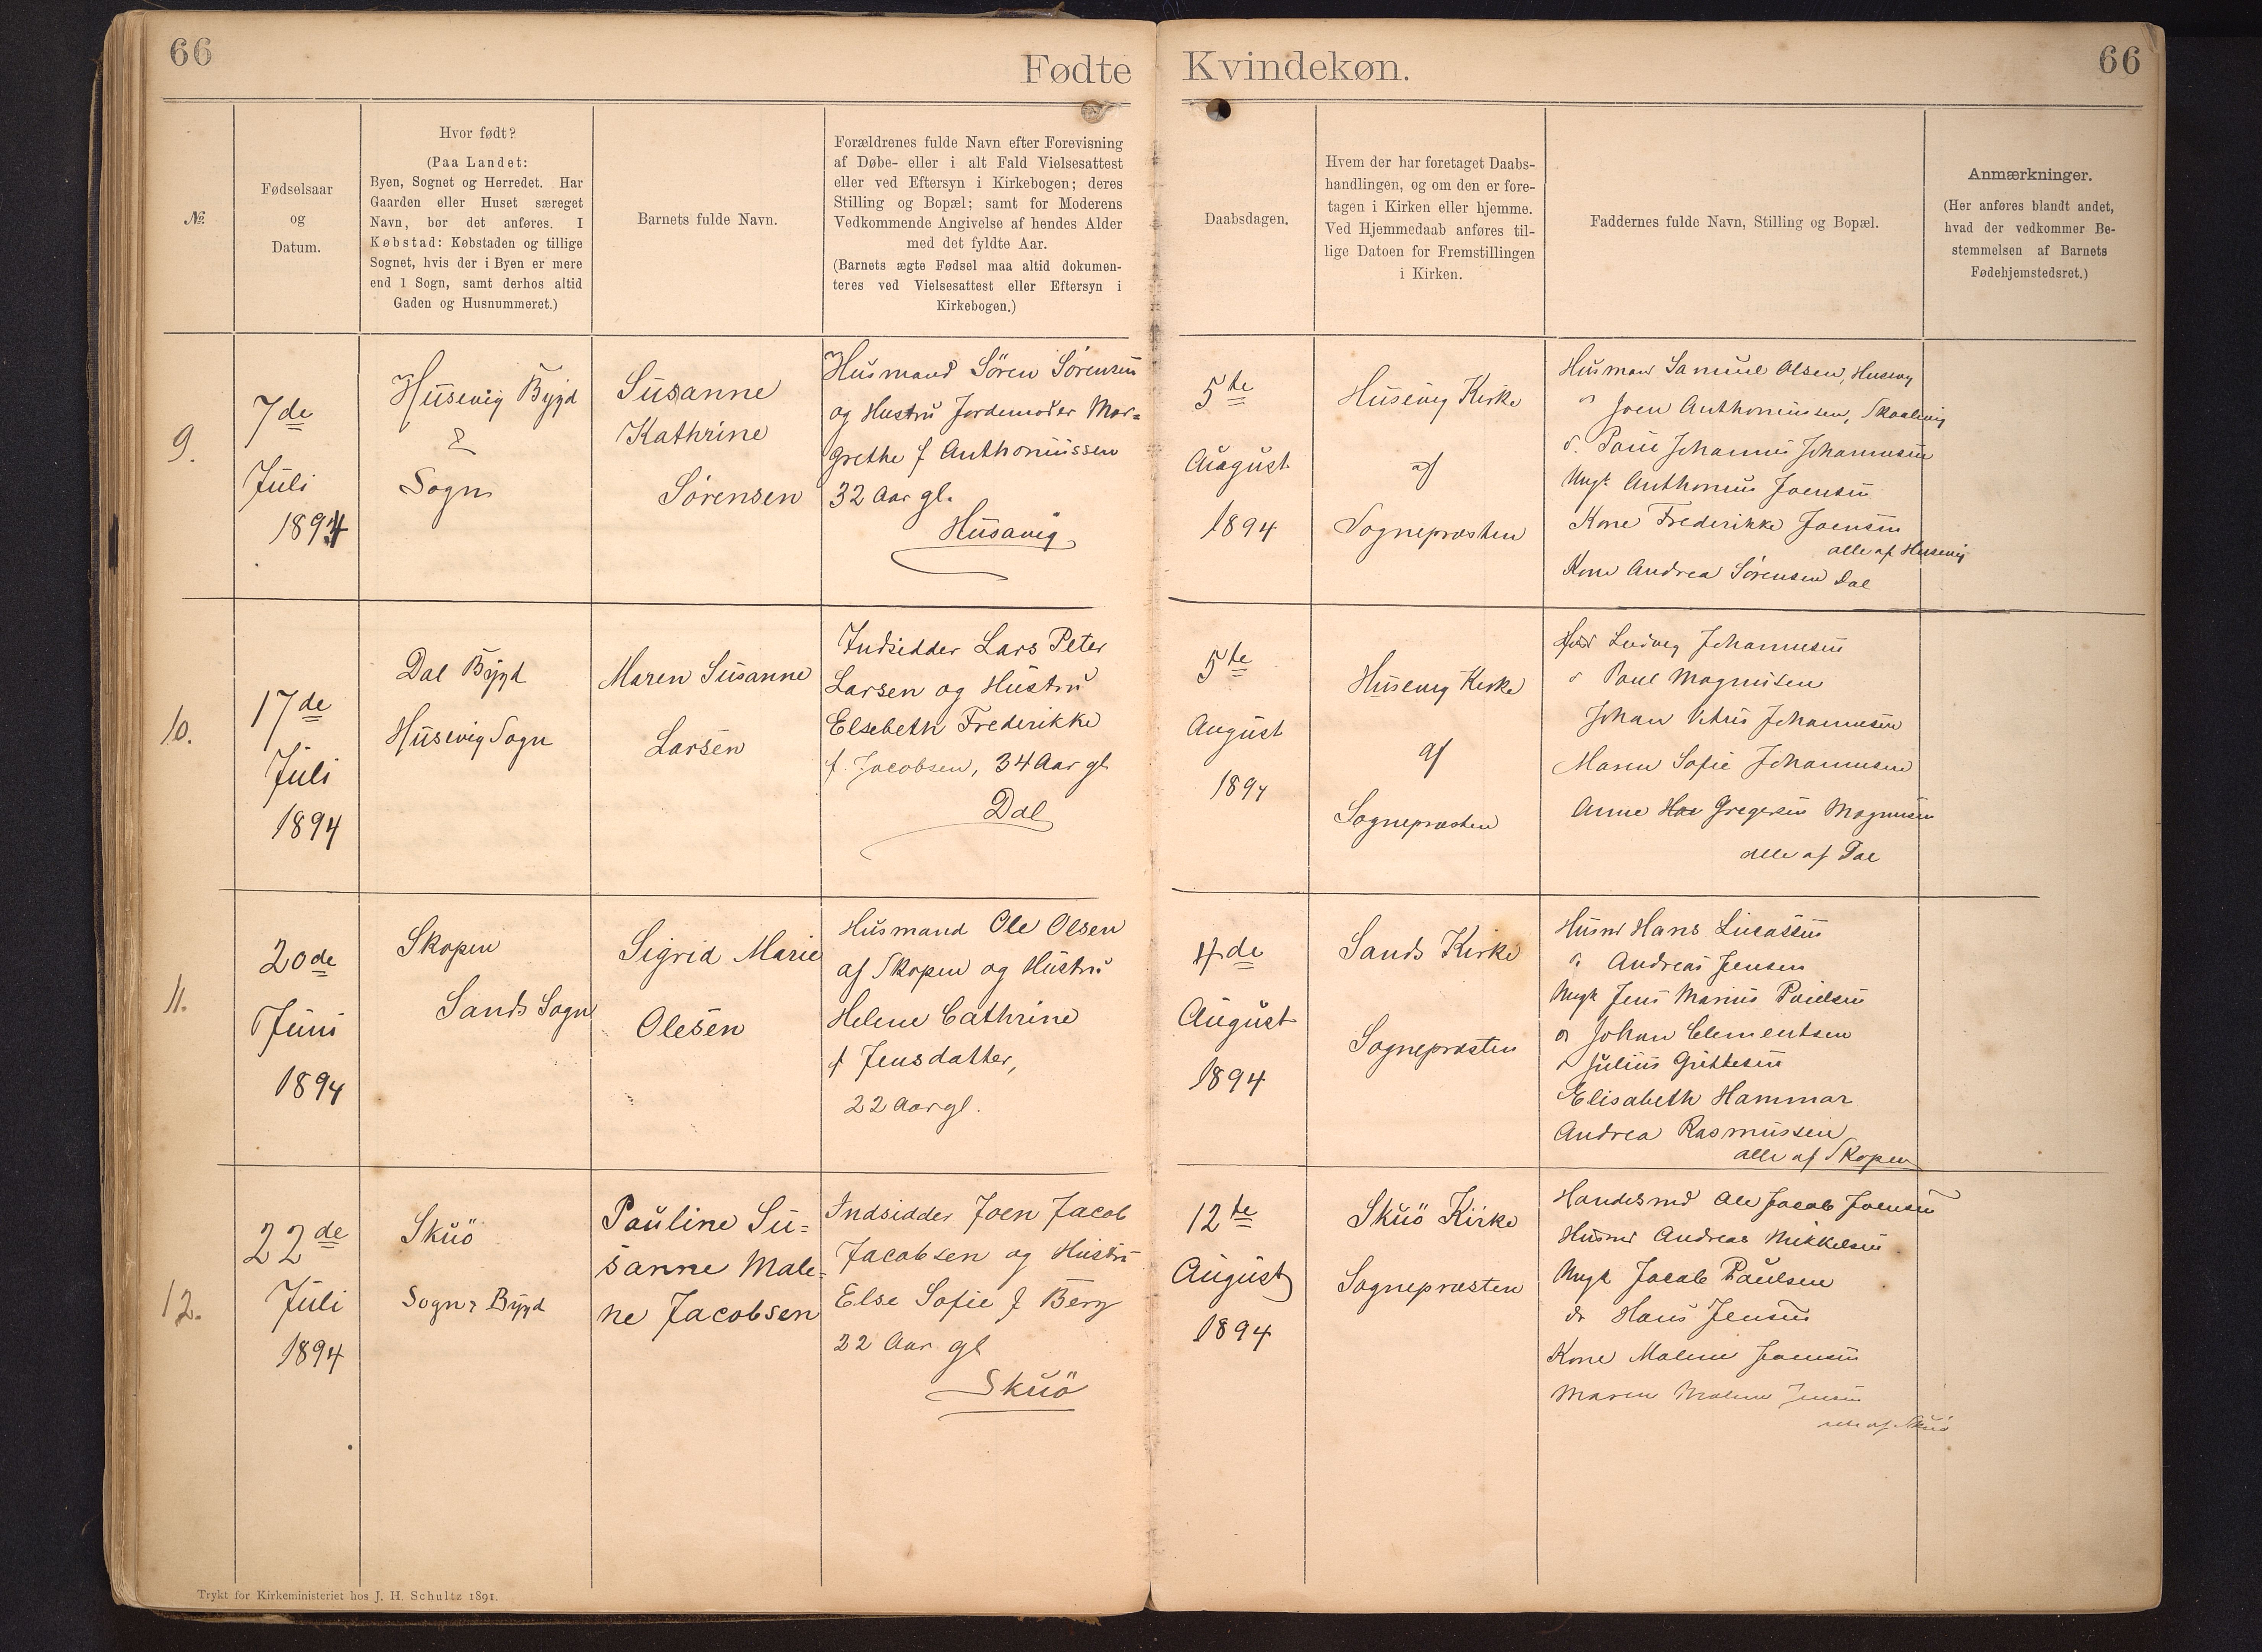 66
Fødte
Kvindekøn.
66
№
Fødselsaar
og
Datum.
Hvor født?
(Paa Landet:
Byen, Sognet og Herredet. Har
Gaarden eller Huset særeget
Navn, bør det anføres. I
Købstad: Købstaden og tillige
Sognet, hvis der i Byen er mere
end 1 Sogn, samt derhos altid
Gaden og Husnummeret.)
Barnets fulde Navn.
Forældrenes fulde Navn efter Forevisning
af Døbe- eller i alt Fald Vielsesattest
eller ved Eftersyn i Kirkebogen; deres
Stilling og Bopæl; samt for Moderens
Vedkommende Angivelse af hendes Alder
med det fyldte Aar.
(Barnets ægte Fødsel maa altid dokumen-
teres ved Vielsesattest eller Eftersyn i
Kirkebogen.)
Daabsdagen.
Hvem der har foretaget Daabs-
handlingen, og om den er fore-
tagen i Kirken eller hjemme.
Ved Hjemmedaab anføres til-
lige Datoen for Fremstillingen
i Kirken.
Faddernes fulde Navn, Stilling og Bopæl.
Anmærkninger.
(Her anføres blandt andet,
hvad der vedkommer Be-
stemmelsen af Barnets
Fødehjemstedsret.)
9.
7de
Juli
1894
Husevig Bygd
&
Sogn
Susanne
Kathrine
Sørensen
Husmand Sören Sörensen
og Hustru Jordemoder Mar=
grethe f Anthoniussen
32 Aar gl.
Husavig
5te
August
1894
Husevig Kirke
af
Sognepræsten
Husmand Samuel Olsen, Husevig
Joen Anthoniussen, Skaalevig
d. Poul Johannes Johannesen
Ungk Anthonius Joensen
Kone Frederikke Joensen
alle af Husevig
Kone Andrea Sørensen Dal
10.
17de
Juli
1894
Dal Bygd
Husevig Sogn
Maren Susanne
Larsen
Indsidder Lars Peter
Larsen og Hustru
Elsebeth Frederikke
f. Jacobsen, 34 Aar gl
Dal
5te
August
1894
Husevig Kirke
af
Sognepræsten
Ludvig Johannesen
Poul Magnusen
Johan Petrus Johannesen
Maren Sofie Johannesen
Anne Gregersen Magnusen
alle af Dal
11.
20de
Juni
1894
Skopen
Sands Sogn
Sigrid Marie
Olesen
Husmand Ole Olsen
af Skopen og Hustru
Helene Cathrine
f Jensdatter,
22 Aar gl.
4de
August
1894
Sands Kirke
Sognepræsten
Husmd Hans Lucassen
d. Andreas Jensen
Ungk Jens Marius Poulsen
d Johan Clementsen
d Julius Guttesen
Elisabeth Hammar
Andrea Rasmussen
alle af Skopen
12.
22de
Juli
1894
Skuö
Sogn & Bygd
Pauline Su=
sanne Male=
ne Jacobsen
Indsidder Joen Jacob
Jacobsen og Hustru
Else Sofie f Berg
22 Aar gl
Skuö
12te
August
1894
Skuö Kirke
Sognepræsten
Handelsmd Ole Jacob Joensen
Husmd Andreas Mikkelsen
Ungk Jacob Paulsen
do Hans Jensen
Kone Malene Joensen
Maren Malene Jensen
alle af Skuö
Trykt for Kirkeministeriet hos J. H. Schultz 1891.